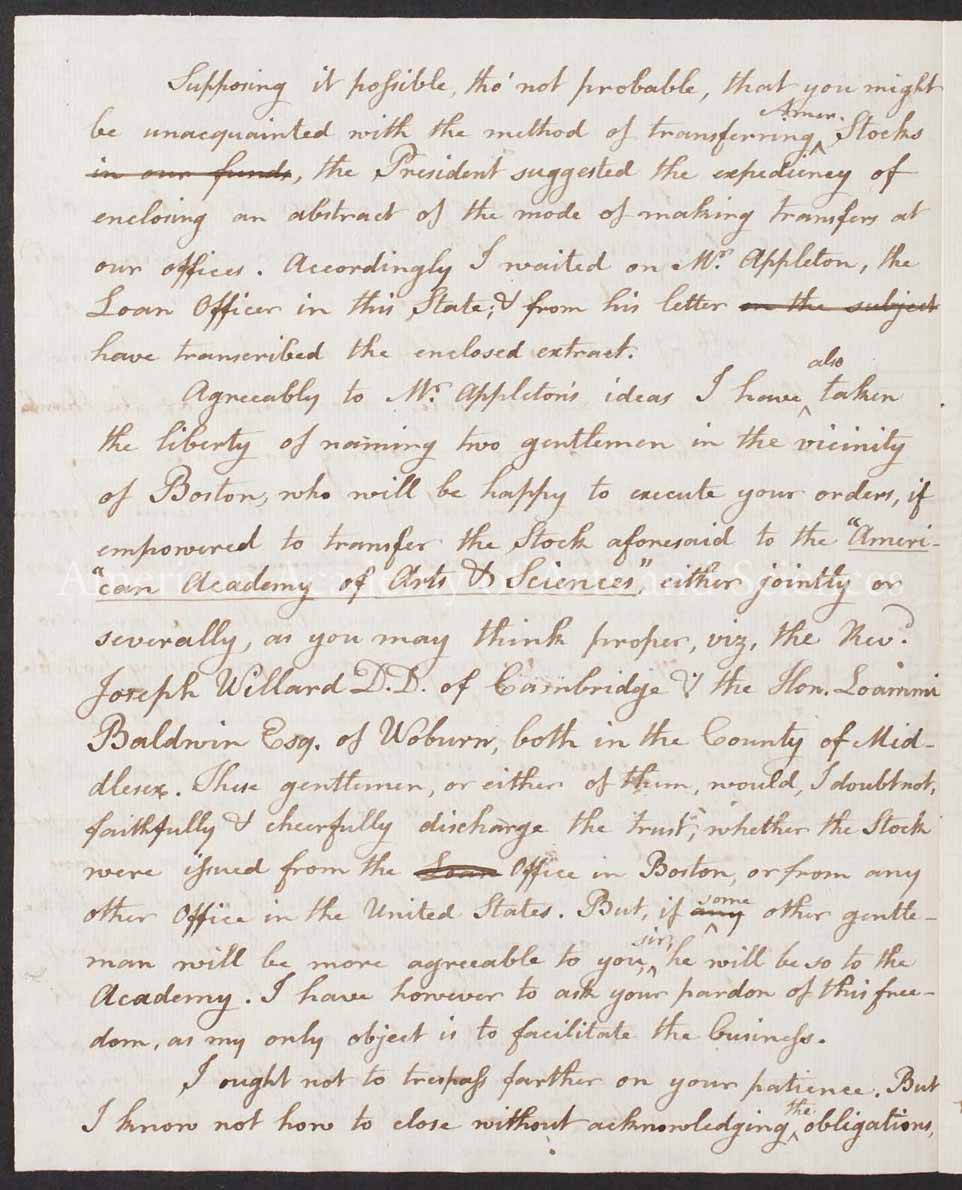 Supposing it possible, tho' not probable, that you might
be unacquainted with the method of transferring ^Amer. Stocks
~~in our funds~~, the President suggested the expediency of
enclosing an abstract of the mode of making transfers at
our offices. Accordingly I waited on Mr. Appleton, the
Loan Officer in this State; & from his letter ~~on the subject~~
have transcribed the enclosed extract.
Agreeably to Mr. Appleton's ideas I have ^also taken
the liberty of naming two gentlemen in the vicinity
of Boston, who will be happy to execute your orders, if
empowered to transfer the Stock aforesaid to the "Ameri-
"can Academy of Arts & Sciences", either jointly or
severally, as you may think proper, viz, the Revd.
Joseph Willard D.D. of Cambridge & the Hon. Loammi
Baldwin Esq. of Woburn, both in the County of Mid-
dlesex. These gentlemen, or either of them, would, I doubt not,
faithfully & cheerfully discharge the trust, whether the Stock
were issued from the ~~Loan~~ Office in Boston, or from any
other Office in the United States. But, if ~~any~~ ^some other gentle-
man will be more agreeable to you, ^sir, he will be so to the
Academy. I have however to ask your pardon of this free-
dom, as my only object is to facilitate the business.
I ought not to trespass farther on your patience. But
I know not how to close without acknowledging ^the obligations,